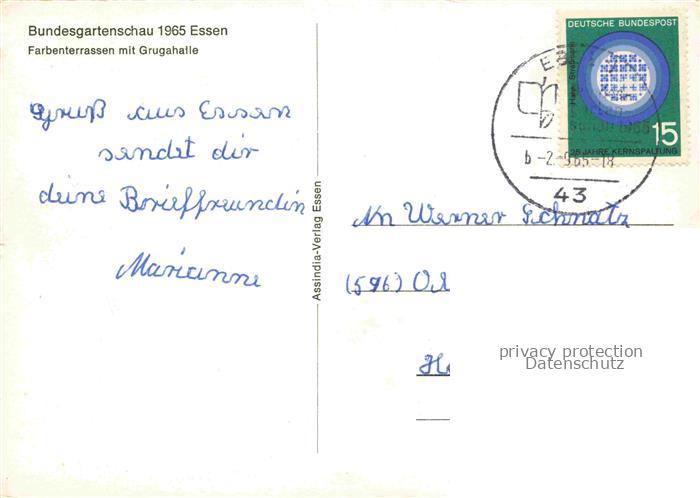 Bundesgartenschau 1965 Essen
Farbenterrassen mit Grugahalle
Gruß aus Essen
sendet dir
deine Brieffreundin
Marianne
Assindia-Verlag Essen
DEUTSCHE BUNDESPOST
15
25 JAHRE KERNSPALTUNG
b -2.-9.65-18
43
An Werner Schmatz
(596)
privacy protection
Datenschutz